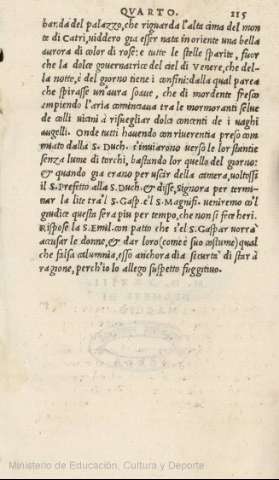 QVARTO. 115
bar: da del palazzo, che riguarda l'alta cima del mon
te di Catri, uiddero gia esser nata in oriente una bella
aurora di color di rose: e tutte le stelle sparite, fuor
che la dolce gouernatrice del ciel di uenere, che del-
la notte, e del giorno tiene i confini: dalla qual parea
che spirasse un'aura soaue, che di mordente fresco
empiendo l'aria cominciaua tra le mormoranti selue
de colli uicini à risuegliar dolci concenti de i uaghi
augelli. Onde tutti hauendo con riuerentia preso com
miato dalla S. Duch. s'inuiarono uerso le lor stantie
senza lume di torchi, bastando lor quello del giorno:
& quando gia erano per uscir della camera, uoltossi
il S. Prefetto alla S. Duch. & disse, Signora per termi-
nar la lite tra'l S. Gasp. e'l S. Magnifi. ueniremo co'l
giudice questa sera piu per tempo, che non si fece hieri.
Rispose la S. Emil. con patto che s'el S. Gaspar uorrà
accusar le donne, & dar loro (come è suo costume) qual
che falsa calumnia, esso anchora dia sicurtà di star à
ragione, perch'io lo allego suspetto fuggitiuo.
Ministerio de Educación, Cultura y Deporte